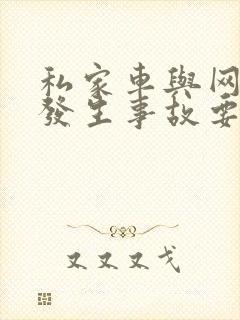 私家車與网
發生事故要
又又又戈